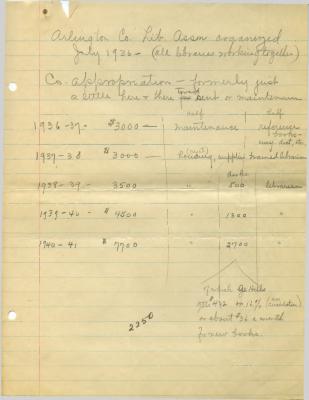 Arlington Co. Lib. Assn organized
July 1936 - (all libraries working together)
Co. appropriation - formerly just
a little here + there toward rent or maintenance
half half
1936-37- $3000 - maintenance reference
books-
ency. dict, etc.
1937-38 $3000 - (rent) housing, supplies trained librarian
books
1938-39- 3500 " 800 librarian
1939-40- $4500 " 1300 "
1940-41 $7700 " 2700 "
of which Ge. Hills
$432 or 16% (on circulation)
or about $36 a month
for new books.
2250